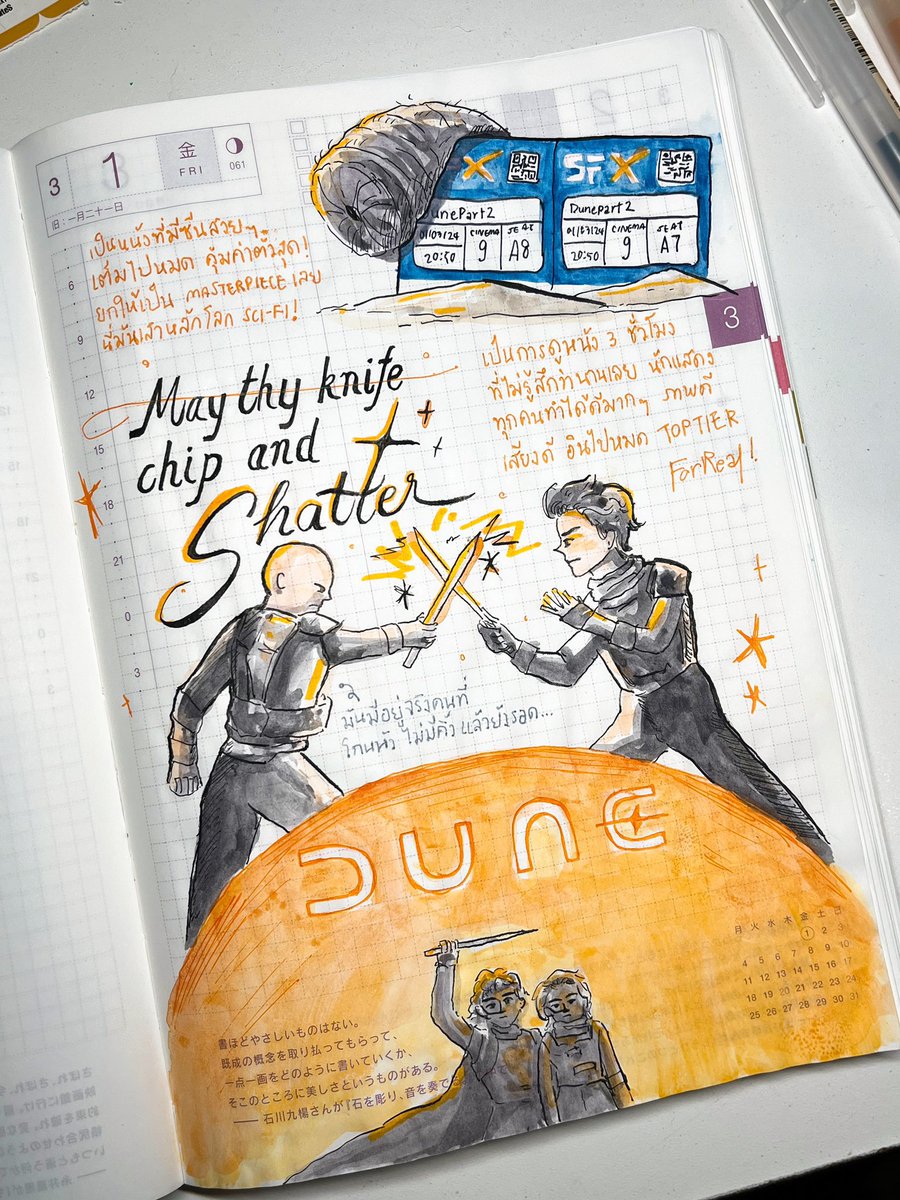 3 1 金 FRI 061
旧:一月二十一日
เป็นหนังที่มีซีนสวยๆ
เต็มไปหมด คุ้มค่าตั๋วสุด!
ยกให้เป็น MASTERPIECE เลย
นี่มันเสาหลักโลก SCI-FI!
SF X
DunePart2
01/03/24 CINEMA SEAT
20:50 9 A8
DunePart2
01/03/24 CINEMA SEAT
20:50 9 A7
3
เป็นการดูหนัง 3 ชั่วโมง
ที่ไม่รู้สึกว่านานเลย นักแสดง
ทุกคนทำได้ดีมากๆ ภาพดี
เสียงดี อินไปหมด TOPTIER
ForReal!
May thy knife
chip and
Shatter
6
9
12
15
18
21
0
3
มันมีอยู่จริงคนที่
โกนหัว ไม่มีคิ้ว แล้วยังรอด...
DUNE
月 火 水 木 金 土 日
1 2 3
4 5 6 7 8 9 10
11 12 13 14 15 16 17
18 19 20 21 22 23 24
25 26 27 28 29 30 31
書ほどやさしいものはない。
既成の概念を取り払ってもらって、
一点一画をどのように書いていくか、
そこのところに美しさというものがある。
── 石川九楊さんが『石を彫り、音を奏で